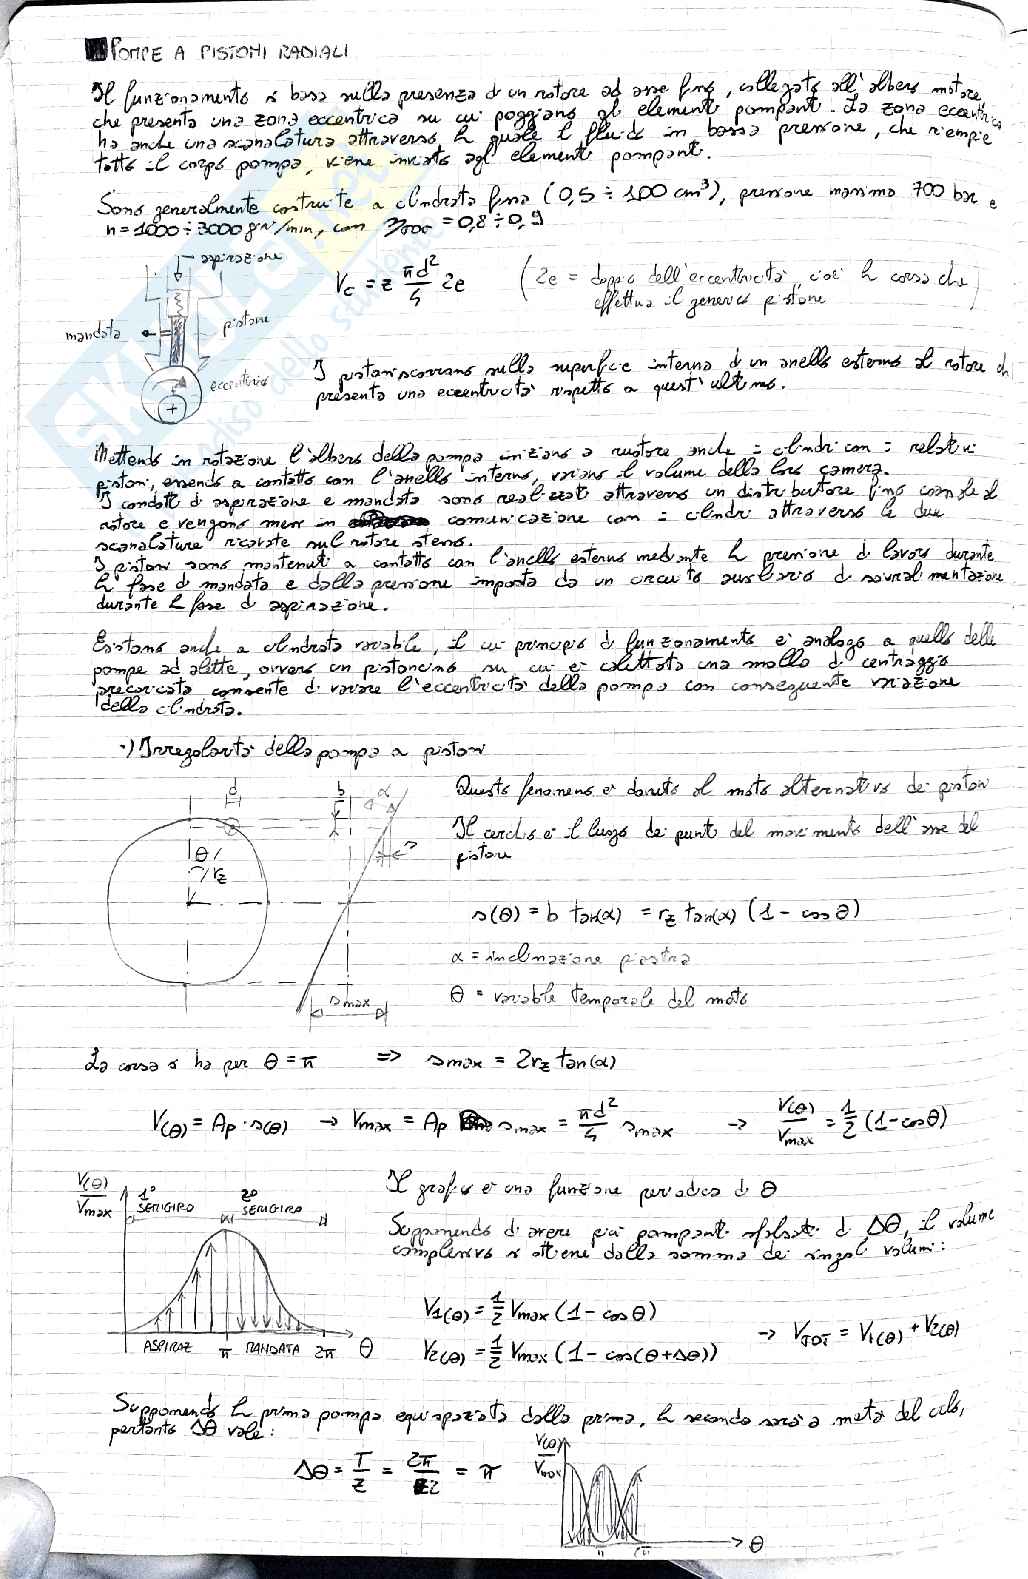 POMPE A PISTONI RADIALI
Il funzionamento si basa sulla presenza di un rotore ad asse fino, collegato all'albero motore,
che presenta una zona eccentrica su cui poggiano gli elementi pompanti. La zona eccentrica
ha anche una scanalatura attraverso la quale il fluido in bassa pressione, che riempie
tutto il corpo pompa, viene inviato agli elementi pompanti.
Sono generalmente costruite a cilindrata fissa (0,5 ÷ 100 cm³), pressione massima 700 bar e
n = 1000 ÷ 3000 giri/min, con = 0,8 ÷ 0,9
aspirazione
mandata
pistone
eccentrico
Vc = z πd²/4 2e
(2e = doppio dell'eccentricità, cioè la corsa che
effettua il generico pistone)
I pistoni scorrono sulla superficie interna di un anello esterno al rotore che
presenta una eccentricità rispetto a quest'ultimo.
Mettendo in rotazione l'albero della pompa iniziano a ruotare anche i cilindri con i relativi
pistoni, essendo a contatto con l'anello interno, variano il volume della loro camera.
I condotti di aspirazione e mandata sono realizzati attraverso un distributore fino coassiale al
rotore e vengono messi in comunicazione con i cilindri attraverso le due
scanalature ricavate sul rotore stesso.
I pistoni sono mantenuti a contatto con l'anello esterno mediante la pressione di lavoro durante
la fase di mandata e dalla pressione imposta da un circuito ausiliario di sovralimentazione
durante la fase di aspirazione.
Esistono anche a cilindrata variabile, il cui principio di funzionamento è analogo a quello delle
pompe ad alette, ovvero un pistoncino su cui è calettata una molla di centraggio
precaricata consente di variare l'eccentricità della pompa con conseguente variazione
della cilindrata.
·) Irregolarità della pompa a pistoni
d b α
θ
rz
smax
Questo fenomeno è dovuto al moto alternativo dei pistoni
Il cerchio è il luogo dei punti del movimento dell'asse del
pistone
s(θ) = b tan(α) = rz tan(α) (1 - cos θ)
α = inclinazione piastra
θ = variabile temporale del moto
La corsa si ha per θ = π => smax = 2rz tan(α)
V(θ) = Ap · s(θ) → Vmax = Ap smax = πd²/4 smax → V(θ)/Vmax = 1/2 (1 - cos θ)
V(θ)/Vmax
1° SEMIGIRO
2° SEMIGIRO
ASPIRAZ π MANDATA 2π θ
Il grafico è una funzione periodica di θ
Supponendo di avere più pompanti sfalsati di Δθ, il volume
complessivo si ottiene dalla somma dei singoli volumi:
V1(θ) = 1/2 Vmax (1 - cos θ)
V2(θ) = 1/2 Vmax (1 - cos(θ + Δθ))
→ VTOT = V1(θ) + V2(θ)
Supponendo la prima pompa equispaziata dalla prima, la seconda sarà a metà del ciclo,
pertanto Δθ vale:
Δθ = T/z = 2π/2 = π
V(θ)/Vmax
π
θ